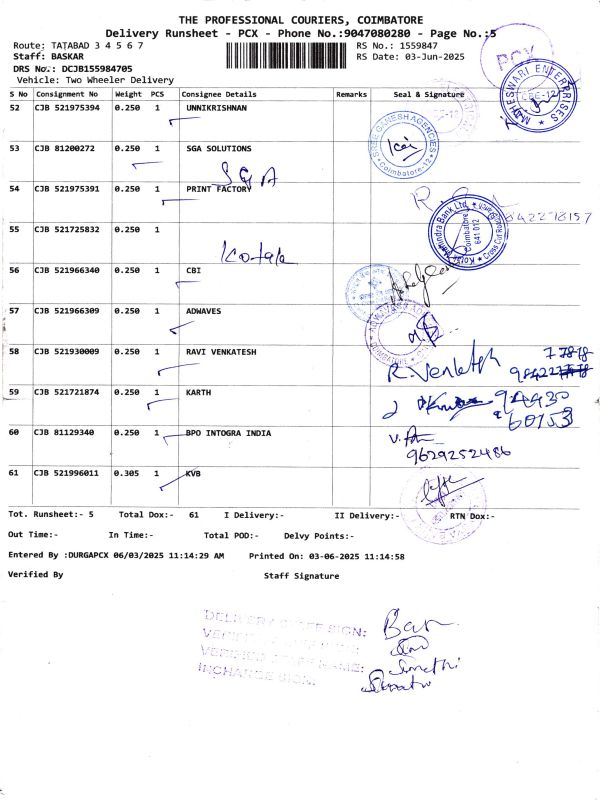 THE PROFESSIONAL COURIERS, COIMBATORE
Delivery Runsheet - PCX - Phone No.:9047080280 - Page No.:5
Route: TATABAD 3 4 5 6 7 RS No.: 1559847
Staff: BASKAR RS Date: 03-Jun-2025
DRS No.: DCJB155984705
Vehicle: Two Wheeler Delivery
PCX
MAHESWARI ENTERPRISES
CBE-12
S No Consignment No Weight PCS Consignee Details Remarks Seal & Signature
52 CJB 521975394 0.250 1 UNNIKRISHNAN
SREE GANESH AGENCIES
Coimbatore-12
53 CJB 81200272 0.250 1 SGA SOLUTIONS
SGA
54 CJB 521975391 0.250 1 PRINT FACTORY
55 CJB 521725832 0.250 1
Kotak
Kotak Mahindra Bank Ltd.
Coimbatore
641 012
56 CJB 521966340 0.250 1 CBI
57 CJB 521966309 0.250 1 ADWAVES
58 CJB 521930009 0.250 1 RAVI VENKATESH R. Venkatesh
59 CJB 521721874 0.250 1 KARTH
60 CJB 81129340 0.250 1 BPO INTOGRA INDIA
9629252486
61 CJB 521996011 0.305 1 KVB
Tot. Runsheet:- 5 Total Dox:- 61 I Delivery:- II Delivery:- RTN Dox:-
Out Time:- In Time:- Total POD:- Delvy Points:-
Entered By :DURGAPCX 06/03/2025 11:14:29 AM Printed On: 03-06-2025 11:14:58
Verified By Staff Signature
DELIVERY STAFF SIGN:
VERIFIED STAFF SIGN:
VERIFIED STAFF NAME:
INCHARGE SIGN: